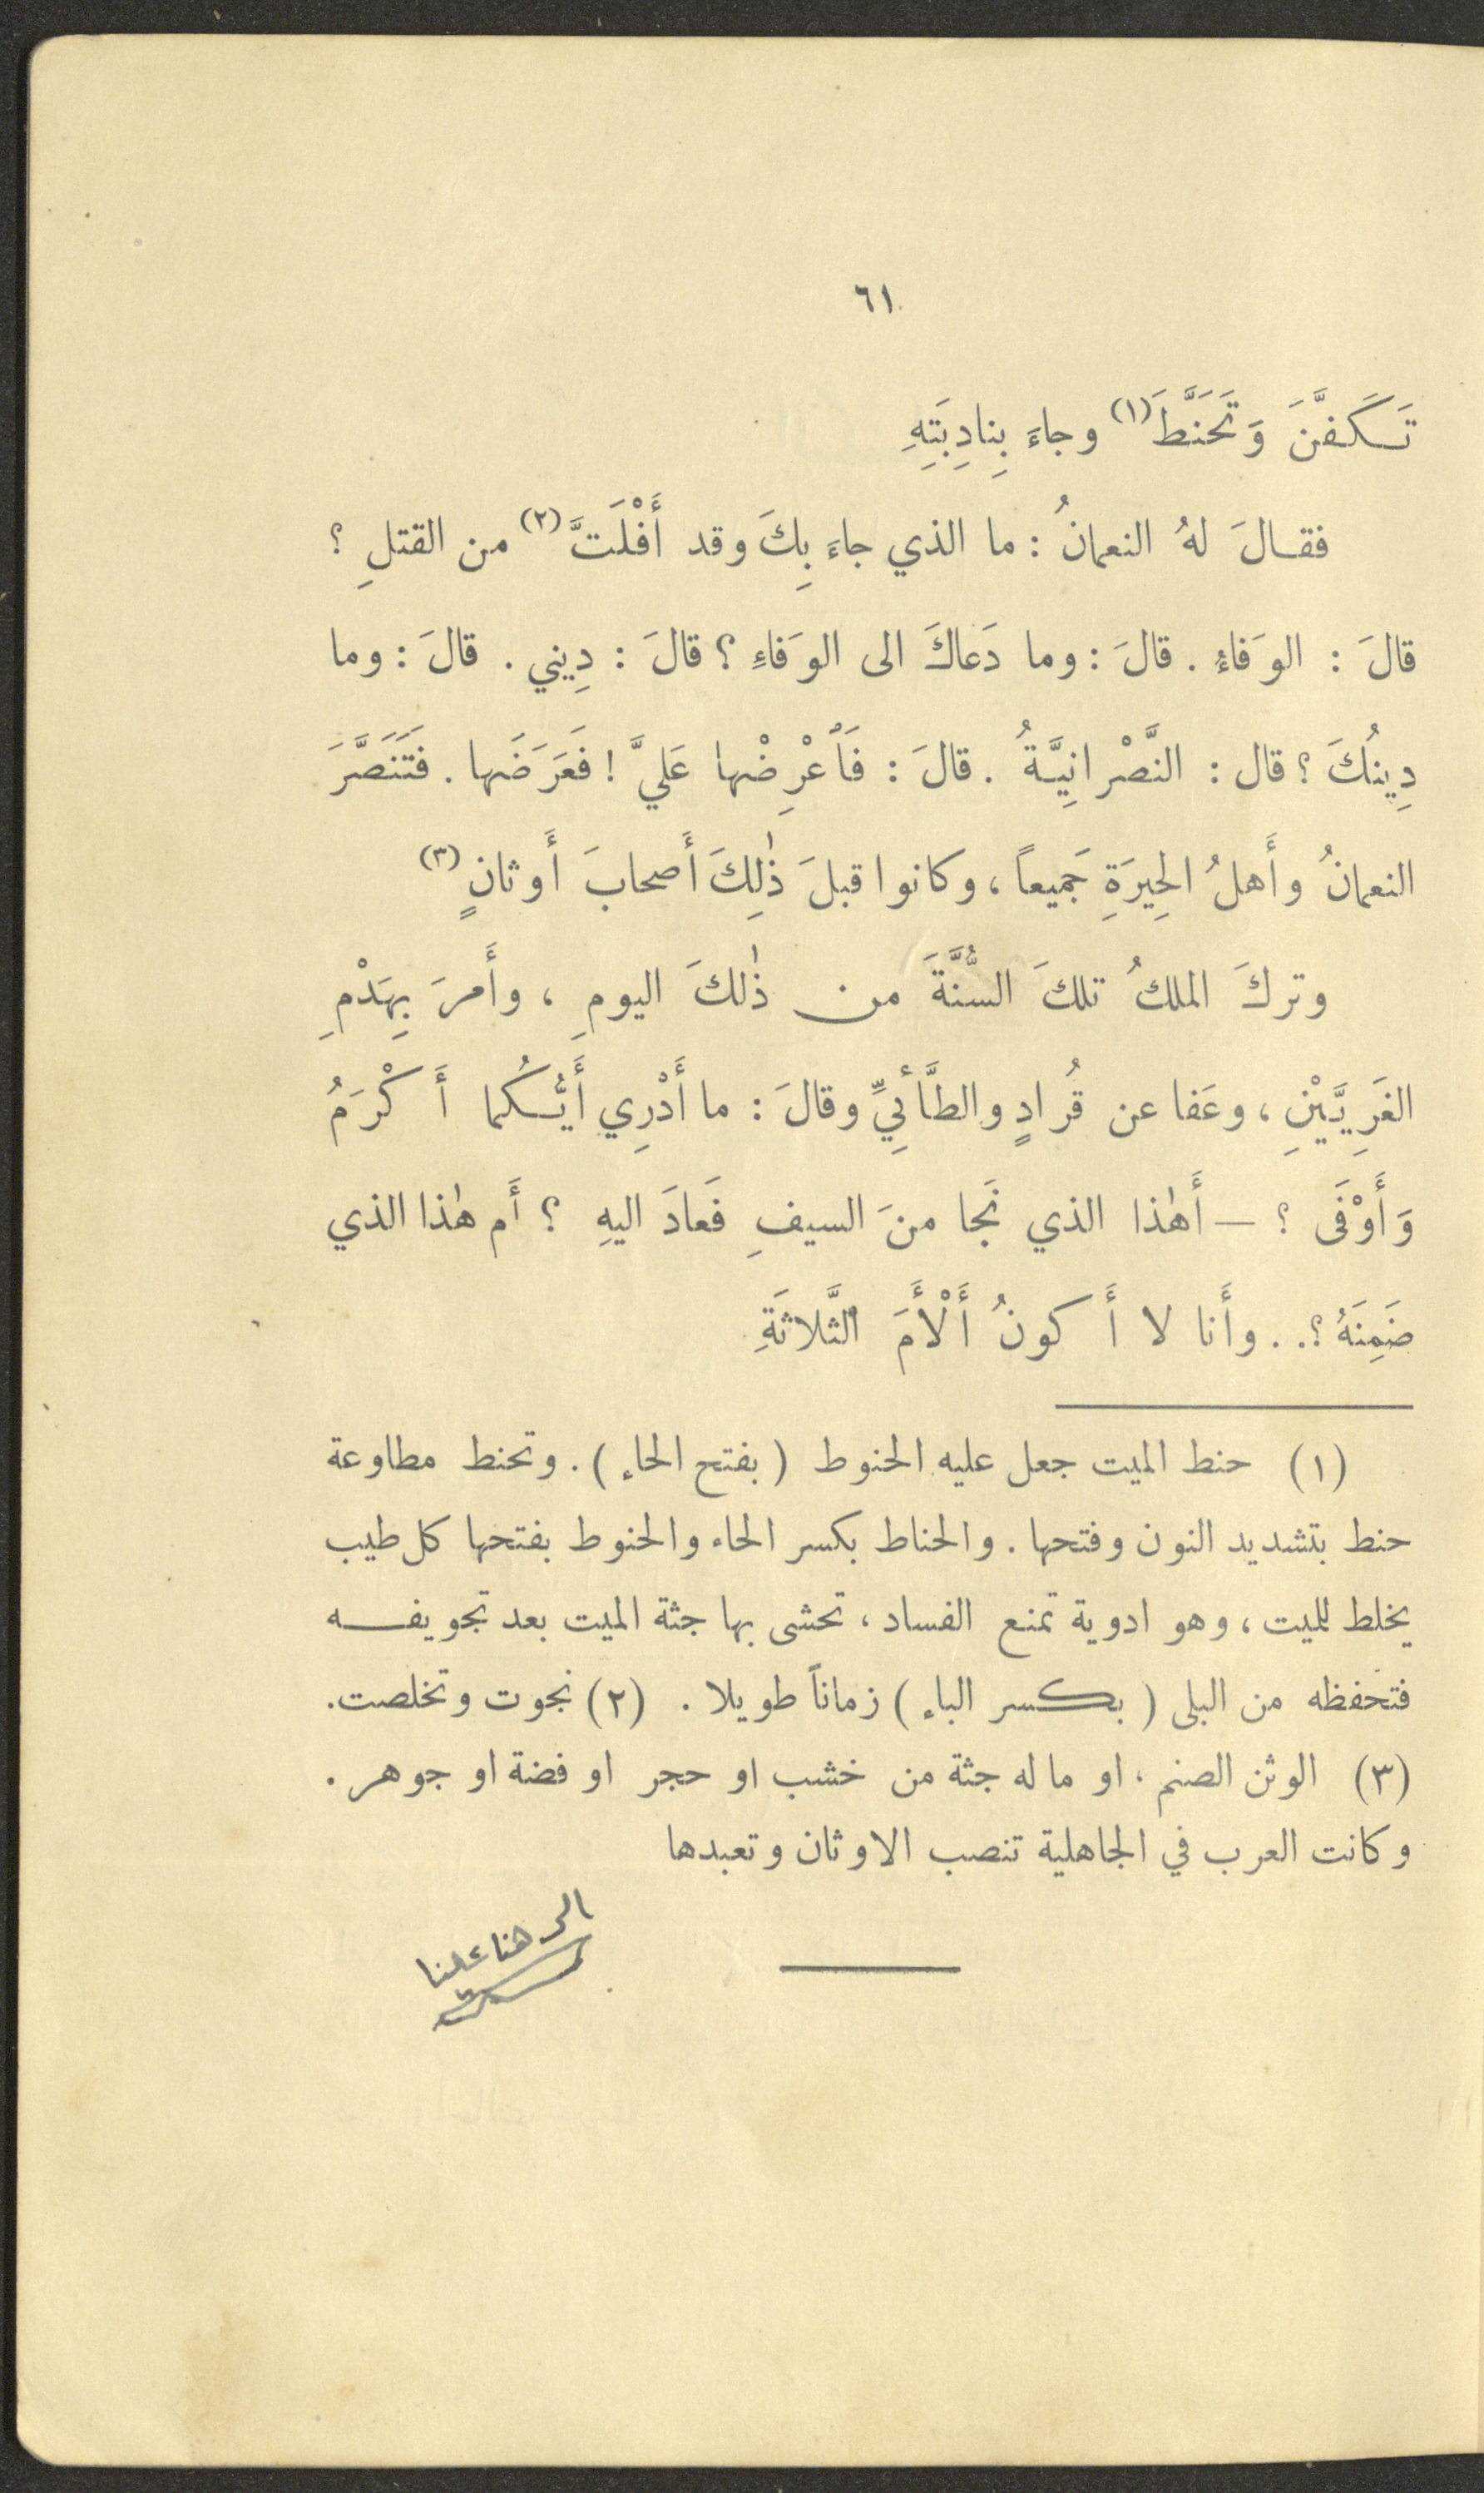 ٦١
تَكَفَّنَ وَتَحَنَّطَ (١) وجاءَ بِنادِبَتِهِ
فقالَ لهُ النعمانُ : ما الذي جاءَ بِكَ وقد أَفْلَتَّ (٢) من القتلِ ؟
قالَ : الوَفاءُ . قالَ : وما دَعاكَ الى الوَفاءِ ؟ قالَ : دِيني . قالَ : وما
دِينُكَ ؟ قال : النَّصْرانِيَّةُ . قالَ : فَأَعْرِضْها عَليَّ ! فَعَرَضَها . فَتَنَصَّرَ
النعمانُ وأَهلُ الحِيرَةِ جَميعاً ، وكانوا قبلَ ذٰلِكَ أَصحابَ أَوثانٍ (٣)
وتركَ الملكُ تلكَ السُّنَّةَ من ذٰلكَ اليومِ ، وأَمرَ بِهَدْمِ
الغَرِيَّيْنِ ، وعَفا عن قُرادٍ والطَّائِيِّ وقالَ : ما أَدْرِي أَيُّكُما أَكْرَمُ
وَأَوْفَى ؟ — أَهٰذا الذي نَجا منَ السيفِ فَعادَ اليهِ ؟ أَم هٰذا الذي
ضَمِنَهُ ؟ . . وأَنا لا أَكونُ أَلْأَمَ الثَّلاثَةِ
(١) حنط الميت جعل عليه الحنوط ( بفتح الحاء ) . وتحنط مطاوعة
حنط بتشديد النون وفتحها . والحناط بكسر الحاء والحنوط بفتحها كل طيب
يخلط للميت ، وهو ادوية تمنع الفساد ، تحشى بها جثة الميت بعد تجويفه
فتحفظه من البلى ( بكسر الباء ) زماناً طويلا . (٢) نجوت وتخلصت .
(٣) الوثن الصنم ، او ما له جثة من خشب او حجر او فضة او جوهر .
وكانت العرب في الجاهلية تنصب الاوثان وتعبدها
الى هنا علينا